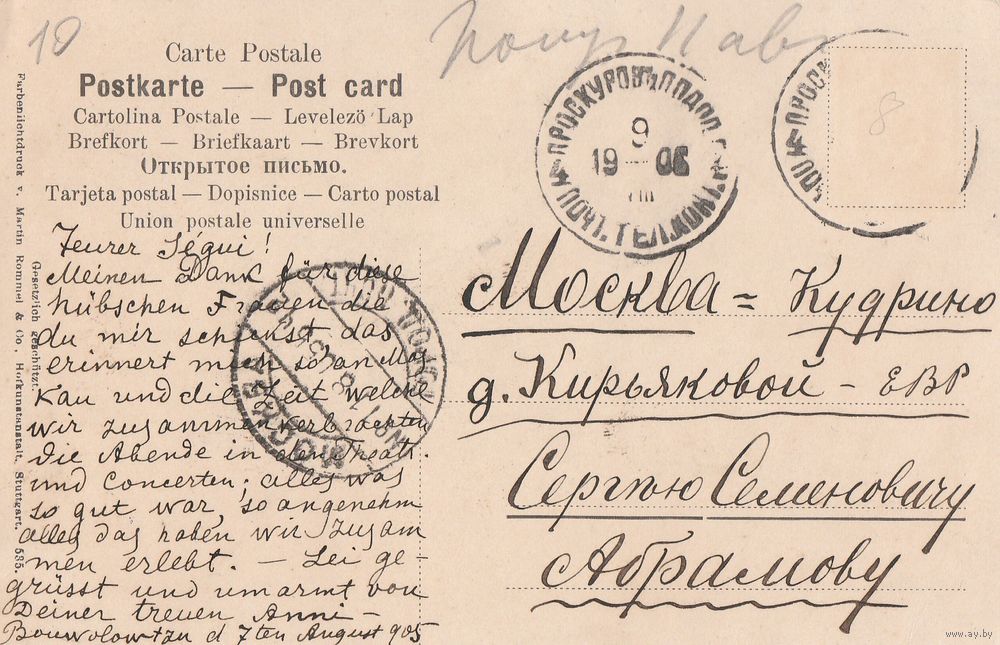 10
Carte Postale
Postkarte — Post card
Cartolina Postale — Levelező Lap
Brefkort — Briefkaart — Brevkort
Открытое письмо.
Tarjeta postal — Dopisnice — Carto postal
Union postale universelle
Farbenlichtdruck v. Martin Rommel & Co., Hofkunstanstalt, Stuttgart. 535.
Gesetzlich geschützt.
ПРОСКУРОВЪ ПОДОЛ.
9
19 — 05
VIII
ПОЧТ. ТЕЛ. КОН.
ПРОСК
8
Teurer Ségui!
Meinen Dank für diese
hübschen Frauen die
du mir schenkst das
erinnert mich so an Mos
kau und die Zeit welche
wir zusammen verbrachten
die Abende in den Theatr.
und Concerten; alles was
so gut war, so angenehm
alles das haben wir zusam
men erlebt. — Sei ge-
grüsst und umarmt von
Deiner treuen Anni —
d 7ten August 905
МОСКВА
Москва = Кудрино
д. Кирьяковой - ЕВР
Сергѣю Семеновичу
Абрамову
www.ay.by